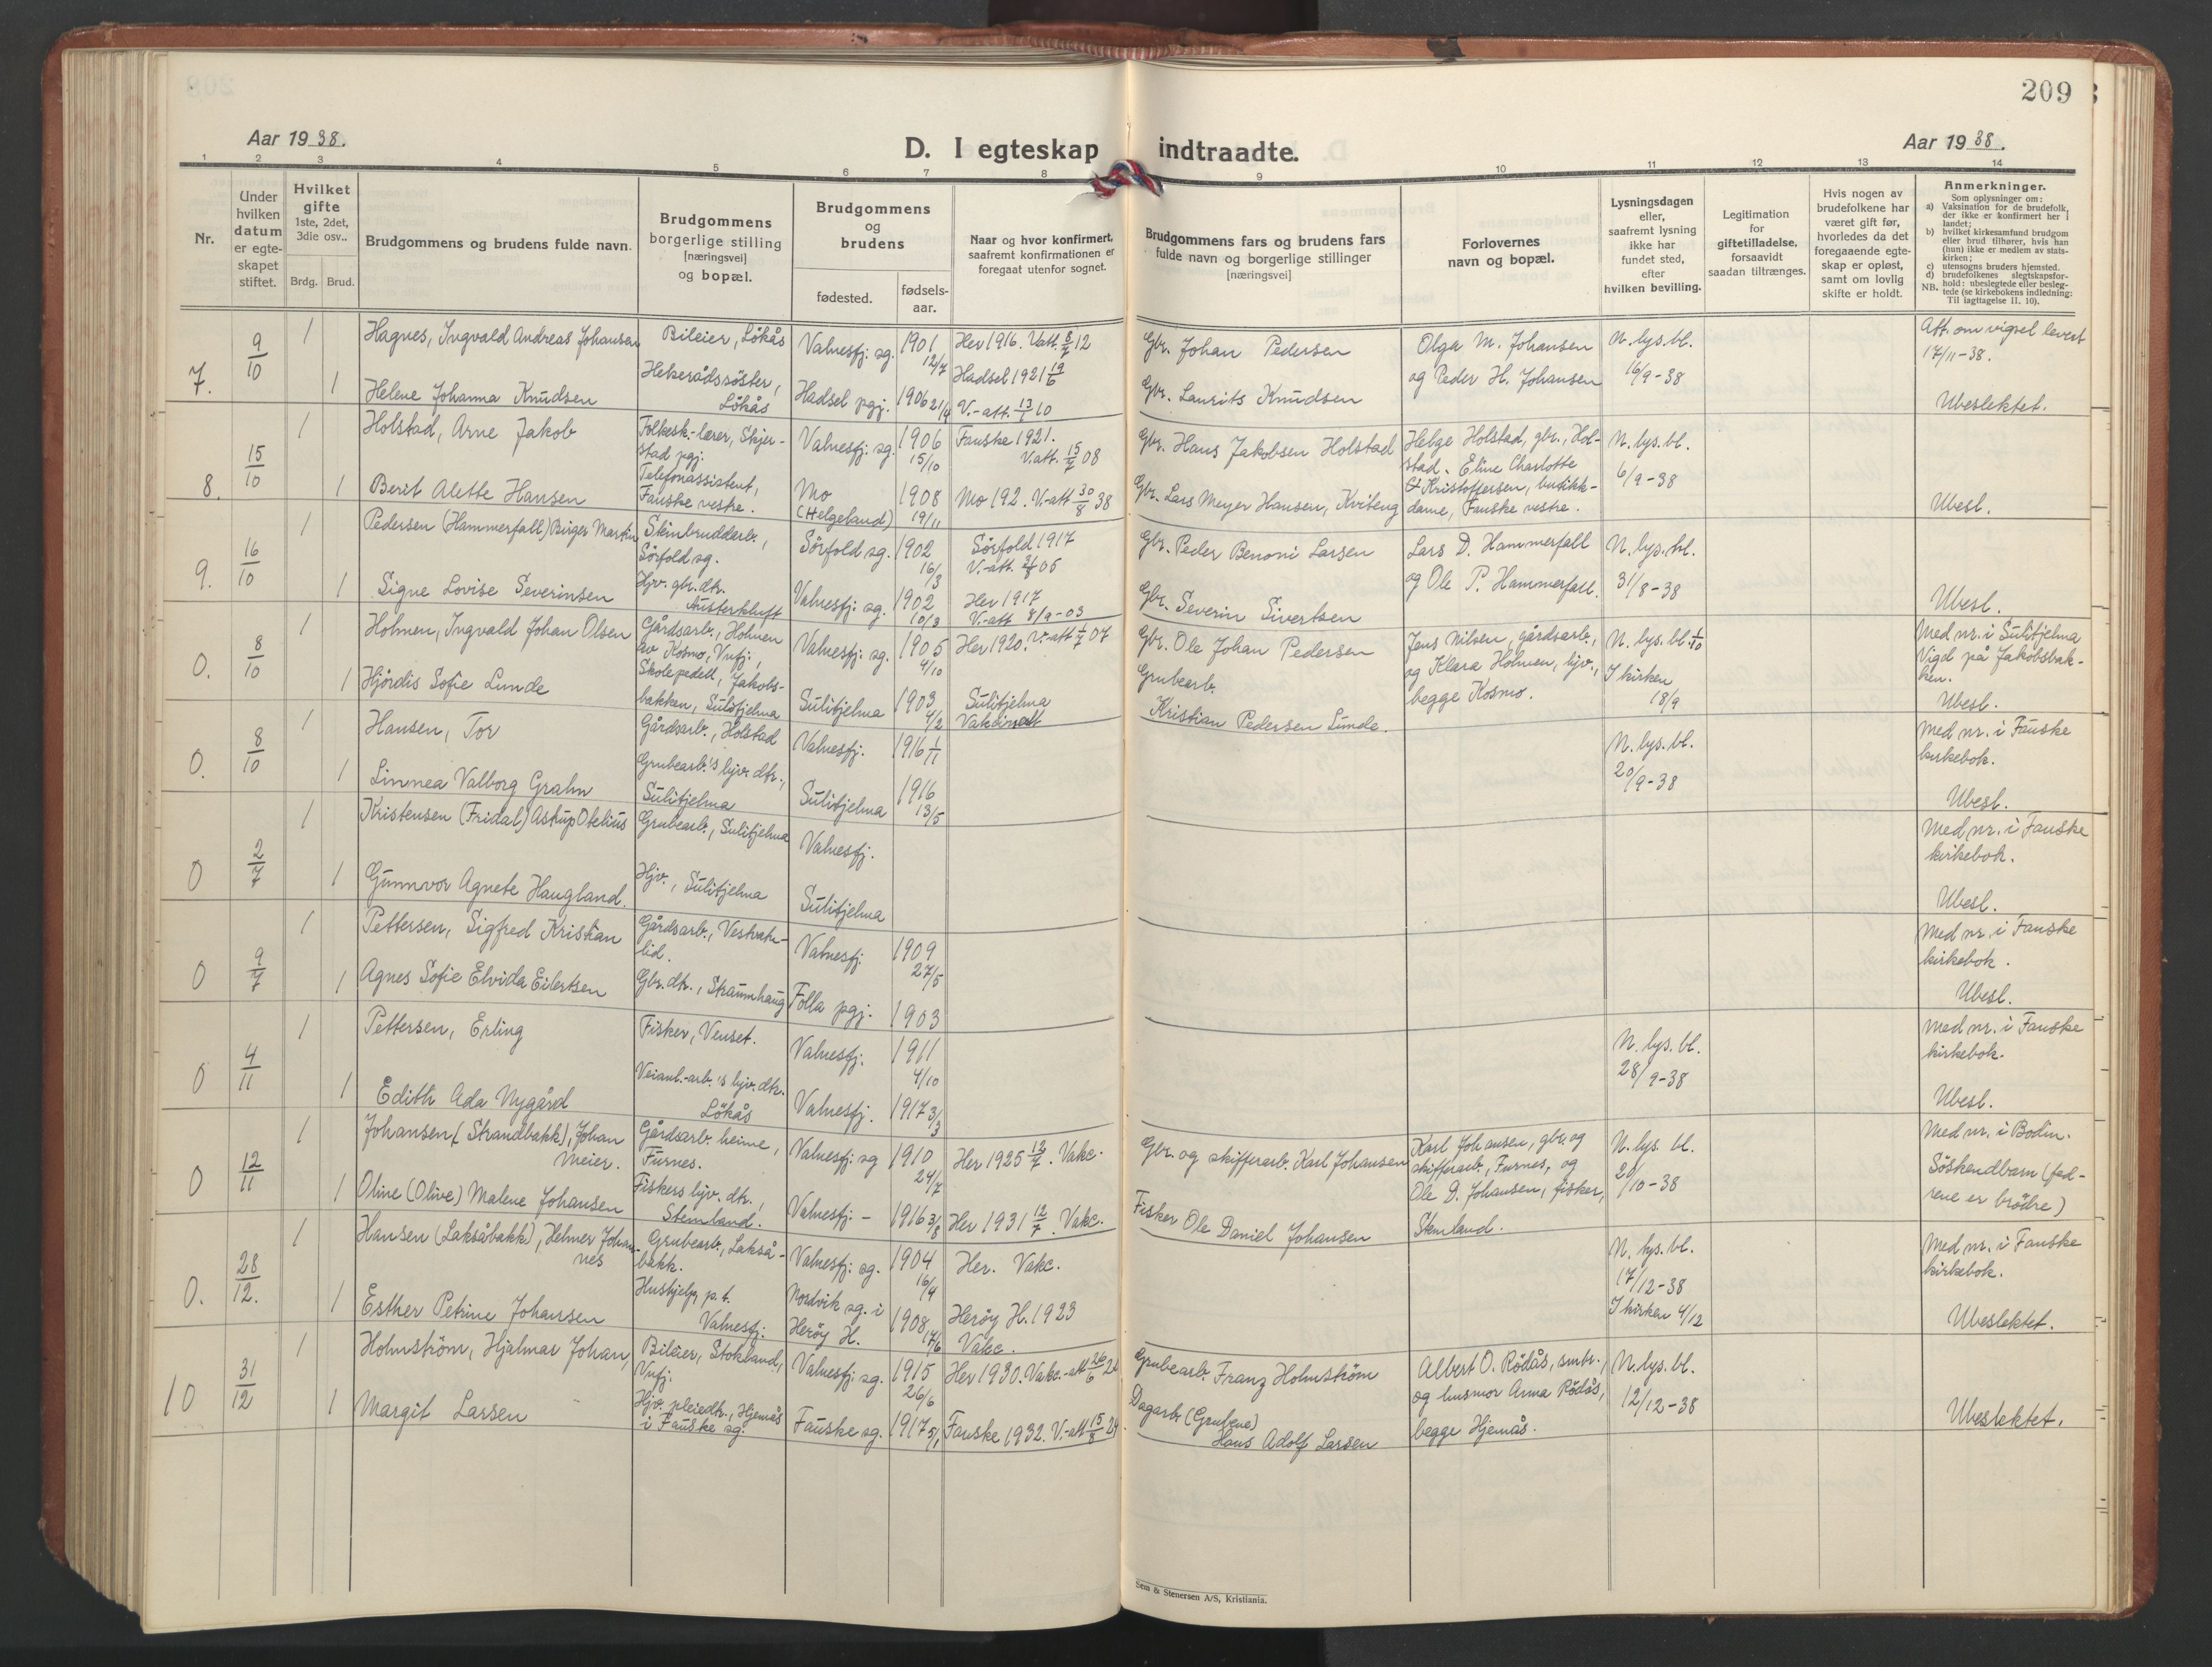 209
Aar 1938.
D. I egteskap indtraadte.
Aar 1938.
1 2 3 4 5 6 7 8 9 10 11 12 13 14
Nr.
Under hvilken datum er egte-skapet stiftet.
Hvilket gifte 1ste, 2det, 3die osv..
Brdg. Brud.
Brudgommens og brudens fulde navn.
Brudgommens borgerlige stilling [næringsvei] og bopæl.
Brudgommens og brudens
fødested. fødsels-aar.
Naar og hvor konfirmert, saafremt konfirmationen er foregaat utenfor sognet.
Brudgommens fars og brudens fars fulde navn og borgerlige stillinger [næringsvei]
Forlovernes navn og bopæl.
Lysningsdagen eller, saafremt lysning ikke har fundet sted, efter hvilken bevilling.
Legitimation for giftetilladelse, forsaavidt saadan tiltrænges.
Hvis nogen av brudefolkene har været gift før, hvorledes da det foregaaende egte-skap er opløst, samt om lovlig skifte er holdt.
Anmerkninger.
Som oplysninger om:
a) Vaksination for de brudefolk, der ikke er konfirmert her i landet;
b) hvilket kirkesamfund brudgom eller brud tilhører, hvis han (hun) ikke er medlem av stats-kirken;
c) utensogns bruders hjemsted.
d) brudefolkenes slegtskapsfor-hold: ubeslegtede eller besleg-tede (se kirkebokens indledning:
NB. Til iagttagelse II. 10).
7. 9/10 1 Hagnes, Ingvald Andreas Johansen Bileier, Lökås Valnesfj. sg. 1901 12/7 Her 1916. Vatt. 12 Gbr. Johan Pedersen Olga M. Johansen N. lys. bl. Att. om vigsel levert
1 Helene Johanna Knudsen Helserådssöster, Lökås Hadsel pgj. 1906 21/4 Hadsel 1921 19/6 V.-att. 13/1 10 Gbr. Laurits Knudsen og Peder H. Johansen 16/9-38 17/11-38. Ubeslektet.
8. 15/10 1 Holstad, Arne Jakob Folkesk.-lærer, Skjer-stad pgj. Valnesfj. sg. 1906 15/10 Fauske 1921. V.att. 15/7 08 Gbr. Hans Jakobsen Holstad Helge Holstad, gbr., Hol-stad. Eline Charlotte N. lys. bl.
1 Berit Alette Hansen Telefonassistent, Fauske vestre. Mo (Helgeland) 1908 19/11 Mo 192. V.-att 30/8 38 Gbr. Lars Meyer Hansen, Kviteng Kristoffersen, butikk-dame, Fauske vestre. 6/9-38 Ubesl.
9. 16/10 1 Pedersen (Hammerfall) Birger Martin Steinbruddarb., Sörfold sg. Sörfold sg. 1902 16/3 Sörfold 1917 V.-att. 06 Gbr. Peder Benoni Larsen Lars D. Hammerfall N. lys. bl.
1 Signe Lovise Severinsen Hjv. gbr. dtr. Austerkluft Valnesfj. sg. 1902 10/3 Her 1917 V.-att 8/9-03 Gbr. Severin Sivertsen og Ole P. Hammerfall. 31/8-38 Ubesl.
0. 8/10 1 Holmen, Ingvald Johan Olsen Gårdsarb., Holmen av Kosmo, Vnfj., Valnesfj. sg. 1905 4/10 Her 1920. V.-att 07 Gbr. Ole Johan Pedersen Jens Nilsen, gårdsarb., N. lys. bl. 1/10 Med nr. i Sulitjelma
1 Hjördis Sofie Lunde Skolepedell, Jakobs-bakken, Sulitjelma Sulitjelma 1903 4/2 Sulitjelma Grubearb. Kristian Pedersen Lunde. og Klara Holmen, hjv., begge Kosmo. I kirken 18/9 Vigd på Jakobsbak-ken. Ubesl.
0. 8/10 1 Hansen, Tor Gårdsarb., Holstad Valnesfj. 1916 1/11 N. lys. bl. Med nr. i Fauske kirkebok.
1 Linnea Valborg Grahn Grubearb.'s hjv. dtr., Sulitjelma Sulitjelma 1916 13/5 20/9-38 Ubesl.
0 2/7 1 Kristensen (Fridal) Astrup Otelius Grubearb., Sulitjelma Valnesfj. Med nr. i Fauske kirkebok.
1 Gunnvor Agnete Haugland. Hjv., Sulitjelma Sulitjelma Ubesl.
0 9/7 1 Pettersen, Sigfred Kristian Gårdsarb., Vestvatn-lid. Valnesfj. 1909 27/5 Med nr. i Fauske kirkebok.
1 Agnes Sofie Elvida Eilertsen Gbr. dtr., Straumhaug Folla pgj. 1903 Ubesl.
0 4/11 1 Pettersen, Erling Fisker, Venset. Valnesfj. 1911 4/10 N. lys. bl. Med nr. i Fauske kirkebok.
1 Edith Ada Nygård Veianl.-arb.'s hjv. dtr. Lökås Valnesfj. 1917 3/3 28/9-38 Ubesl.
0 12/11 1 Johansen (Strandbakk), Johan Meier. Gårdsarb. heime, Furnes. Valnesfj. sg 1910 24/7 Her 1925 12/7. Vakc. Gbr. og skifferarb. Karl Johansen Karl Johansen, gbr. og skifferarb., Furnes, og N. lys. bl. Med nr. i Bodin.
1 Oline (Olive) Malene Johansen Fiskers hjv. dtr., Stemland. Valnesfj. - 1916 3/8 Her 1931 12/7. Vakc. Fisker Ole Daniel Johansen Ole D. Johansen, fisker, Stemland. 20/10-38 Söskendbarn (fed-rene er brödre)
0. 28/12. 1 Hansen (Laksåbakk), Helmer Johan-nes Grubearb., Lakså-bakk. Valnesfj. sg. 1904 16/4 Her. Vakc. N. lys. bl. 17/12-38 Med nr. i Fauske kirkebok.
1 Esther Petrine Johansen Hushjelp p.t. Valnesfj. Nordvik sg. i Heröy H. 1908 17/6 Heröy H. 1923 Vakc. I kirken 4/12 Ubeslektet.
10 31/12 1 Holmström, Hjalmar Johan, Bileier, Stokland, Vnfj. Valnesfj. sg. 1915 26/6 Her 1930. Vakc.-att 26/6 Grubearb. Franz Holmström Albert O. Rödås, smbr., N. lys. bl.
1 Margit Larsen Hjv. pleiedtr., Hjemås i Fauske sg. Fauske sg. 1917 5/1 Fauske 1932. V.-att 15/8 24 Dagarb. (Grubene) Hans Adolf Larsen og husmor Anna Rödås, begge Hjemås. 12/12-38 Ubeslektet.
Sem & Stenersen A/S, Kristiania.